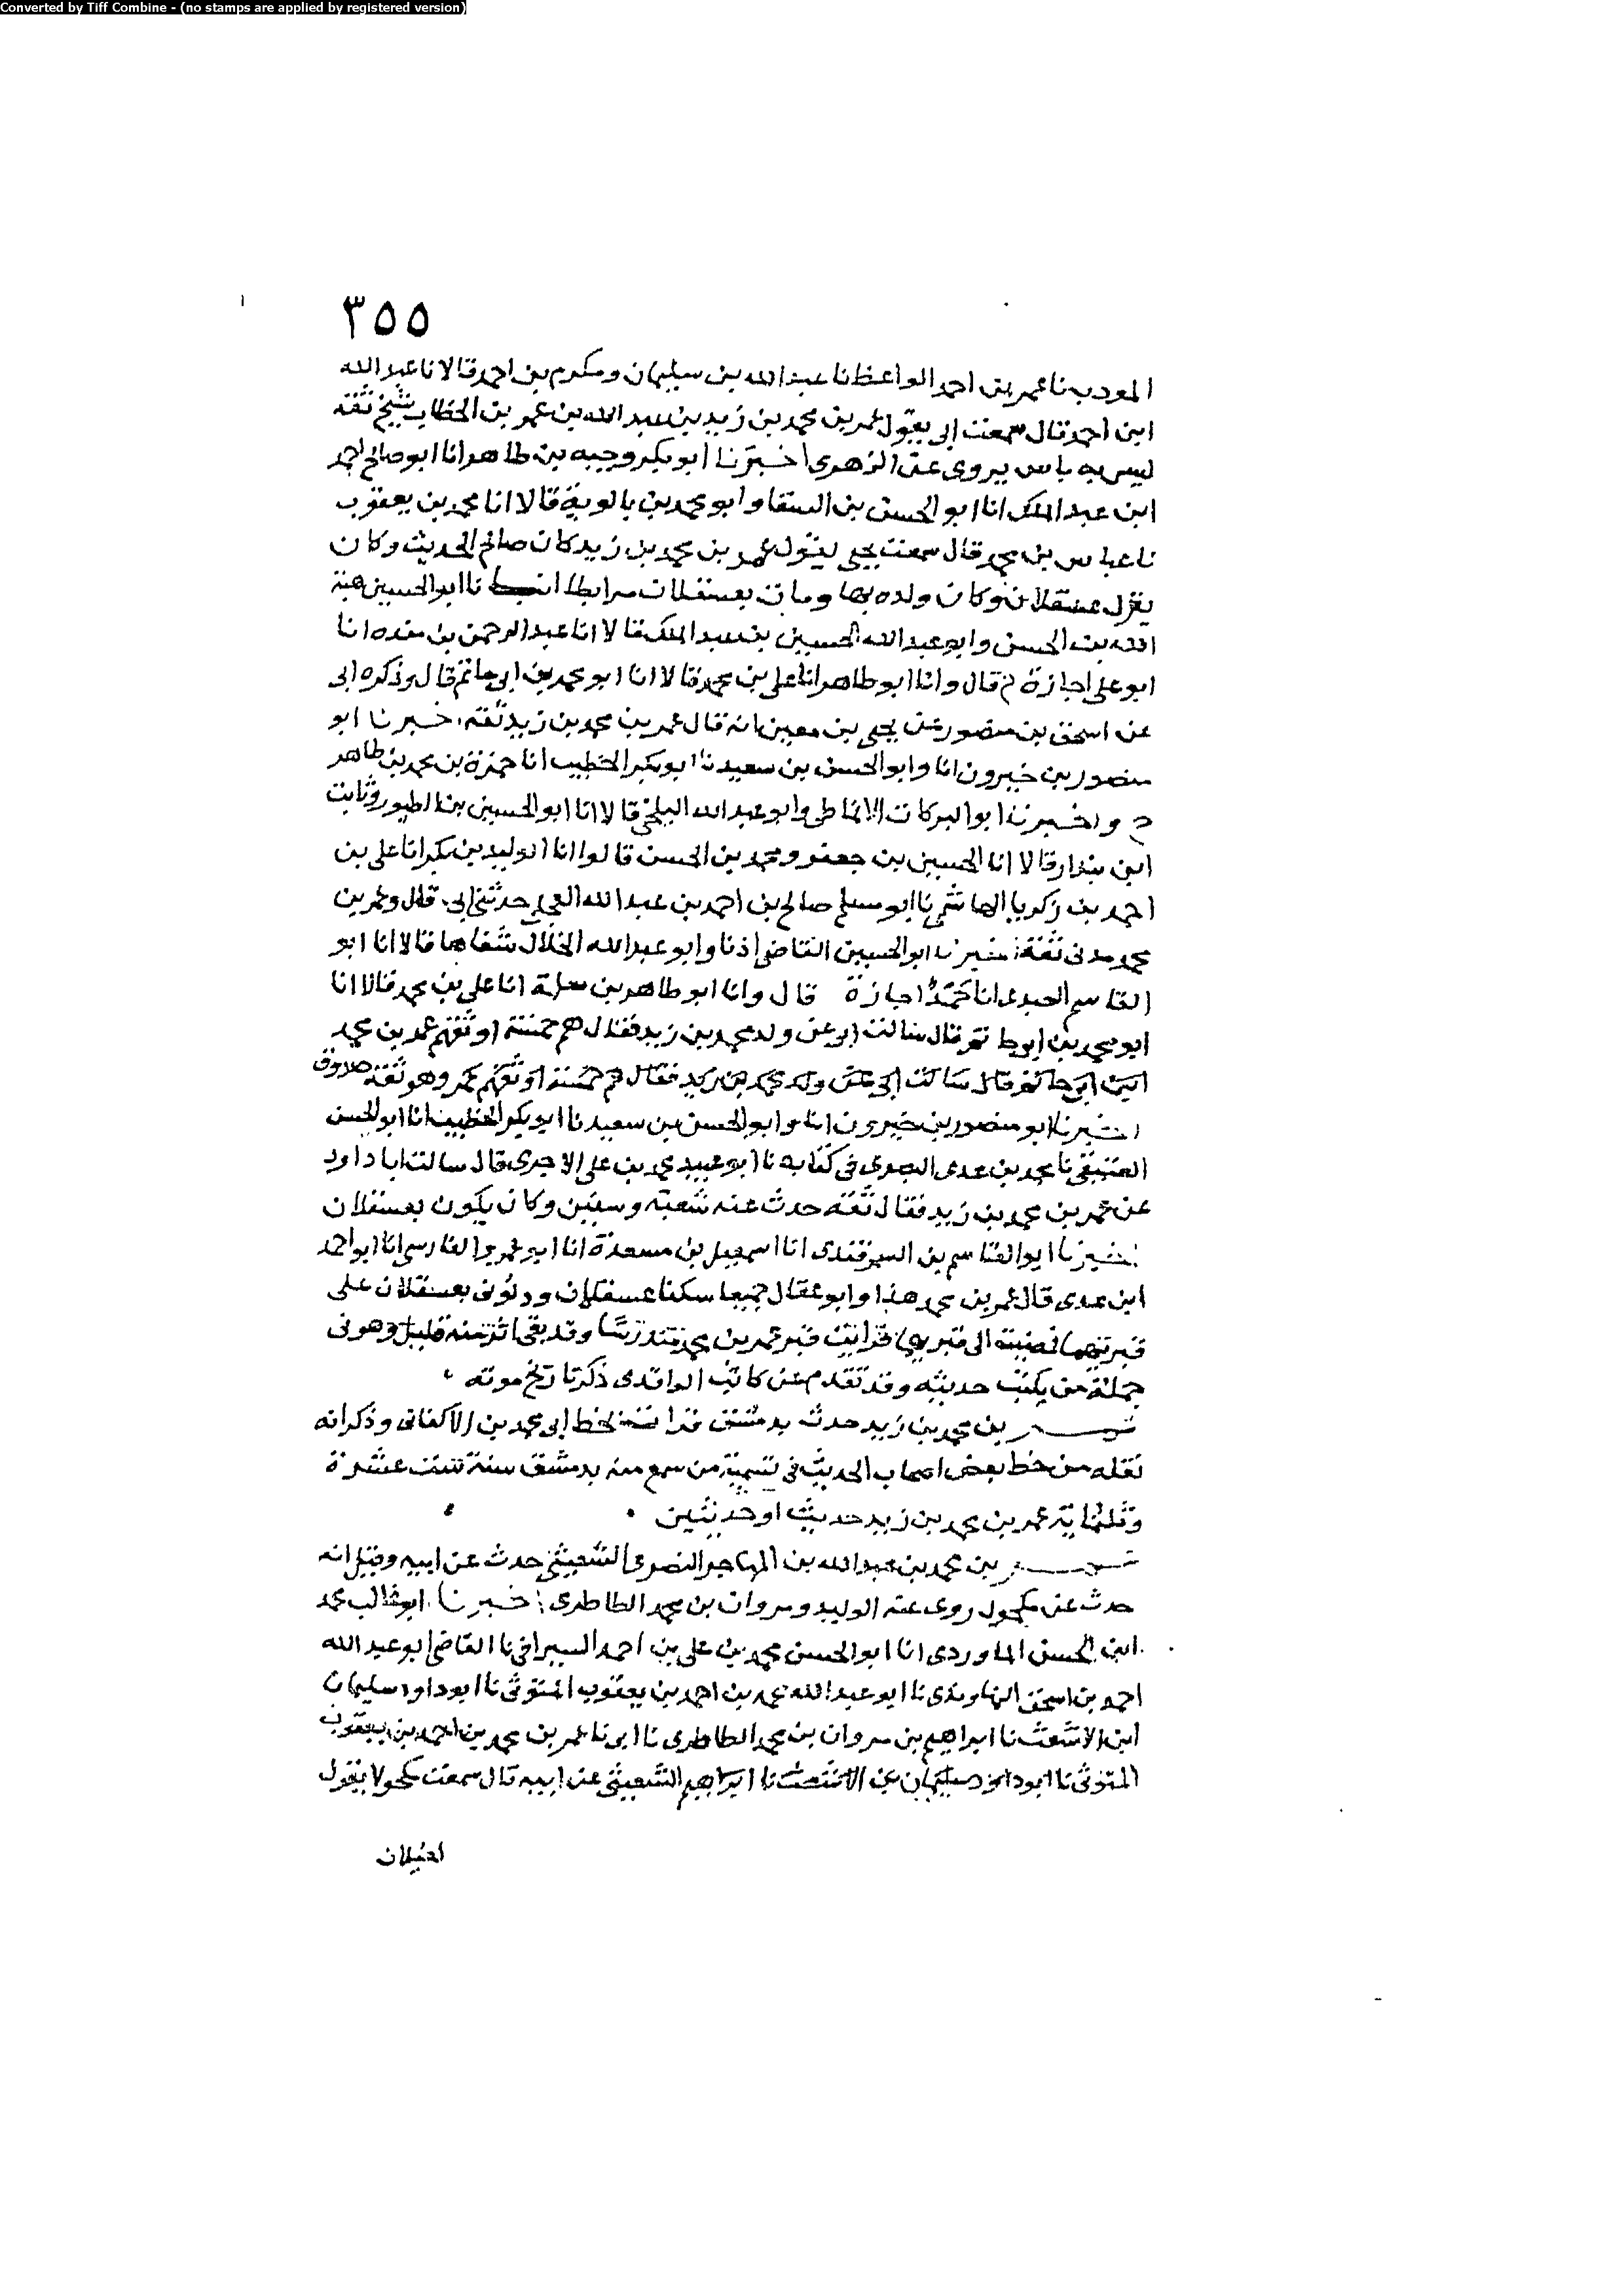 Converted by Tiff Combine - (no stamps are applied by registered version)
٣٥٥
المودب نا عمر بن احمد الواعظ نا عبد الله بن سليمان ومكرم بن احمد قالا نا عبد الله
ابن احمد قال سمعت ابي يقول عمر بن محمد بن زيد بن عبد الله بن عمر بن الخطاب شيخ ثقة
ليس به باس يروى عن الزهرى اخبرنا ابو بكر وجيه بن طاهر انا ابو صالح احمد
ابن عبد الملك انا ابو الحسن بن السقا وابو محمد بن بالوية قالا انا محمد بن يعقوب
نا عباس بن محمد قال سمعت يحيى يقول عمر بن محمد بن زيد كان صالح الحديث وكان
ينزل عسقلان وكان ولده بها ومات بعسقلان مرابطا نا ابو الحسين هبة
الله بن الحسن وابو عبد الله الحسين بن عبد الملك قالا انا عبد الرحمن بن منده انا
ابو على اجازة ح قال وانا ابو طاهر انا على بن محمد قالا انا ابو محمد بن ابى حاتم قال وذكره ابى
عن اسحق بن منصور عن يحيى بن معين انه قال عمر بن محمد بن زيد ثقة اخبرنا ابو
منصور بن خيرون انا وابو الحسن بن سعيد نا ابو بكر الخطيب انا حمزة بن محمد بن طاهر
ح واخبرنا ابو البركات الانماطى وابو عبد الله البلخى قالا انا ابو الحسين بن الطيورى وثابت
ابن بندار قالا انا الحسين بن جعفر ومحمد بن الحسن قالوا انا الوليد بن بكر انا على بن
احمد بن زكريا الهاشمى نا ابو مسلم صالح بن احمد بن عبد الله العجلى حدثنى ابى قال وعمر بن
محمد مدنى ثقة اخبرنا ابو الحسين القاضى اذنا وابو عبد الله الخلال شفاها قالا انا ابو
القاسم العبدى انا حمد اجازة قال وانا ابو طاهر بن سلمة انا على بن محمد قالا انا
ابو محمد بن ابى حاتم قال سالت ابى عن ولد محمد بن زيد فقال هم خمسة اوثقهم عمر بن محمد
ابن ابى حاتم قال سالت ابى عن ولد محمد بن زيد فقال هم خمسة اوثقهم عمر وهو ثقة صدوق
اخبرنا ابو منصور بن خيرون انا وابو الحسن بن سعيد نا ابو بكر الخطيب انا ابو الحسن
العتيقى نا محمد بن عدى البصرى فى كتابه نا ابو عبيد محمد بن على الاجرى قال سالت ابا داود
عن عمر بن محمد بن زيد فقال ثقة حدث عنه شعبة وسفين وكان يكون بعسقلان
اخبرنا ابو القاسم بن السمرقندى انا اسمعيل بن مسعدة انا ابو عمرو الفارسى انا ابو احمد
ابن عدى قال عمر بن محمد هذا وابو عقال جميعا سكنا عسقلان ودفن بعسقلان على
قبريهما الى فرايت قبر عمر بن محمد وقد بقى اثر منه قليل وهو فى
جملة من يكتب حديثه وقد تقدم عن كاتب الواقدى ذكر تاريخ موته
عمر بن محمد بن زيد حدث بدمشق قرات بخط ابى محمد بن الاكفانى وذكر انه
نقله من خط بعض اصحاب الحديث فى تسمية من سمع منه بدمشق سنة ست عشرة
وثلثماية عمر بن محمد بن زيد حديث او حديثين
عمر بن محمد بن عبد الله بن المهاجر النصرى الشعيثى حدث عن ابيه وقيل انه
حدث عن مكحول روى عنه الوليد ومروان بن محمد الطاطرى اخبرنا ابو غالب محمد
ابن الحسن الماوردى انا ابو الحسن محمد بن على بن احمد السيرافى نا القاضى ابو عبد الله
احمد بن اسحق النهاوندى نا ابو عبد الله محمد بن احمد بن يعقوب المتوثى نا ابو داود سليمان
ابن الاشعث نا ابراهيم بن مروان بن محمد الطاطرى نا ابى نا عمر بن محمد بن احمد بن يعقوب
المتوثى نا ابو داود سليمان بن الاشعث نا ابراهيم الشعيثى عن ابيه قال سمعت مكحولا يقول